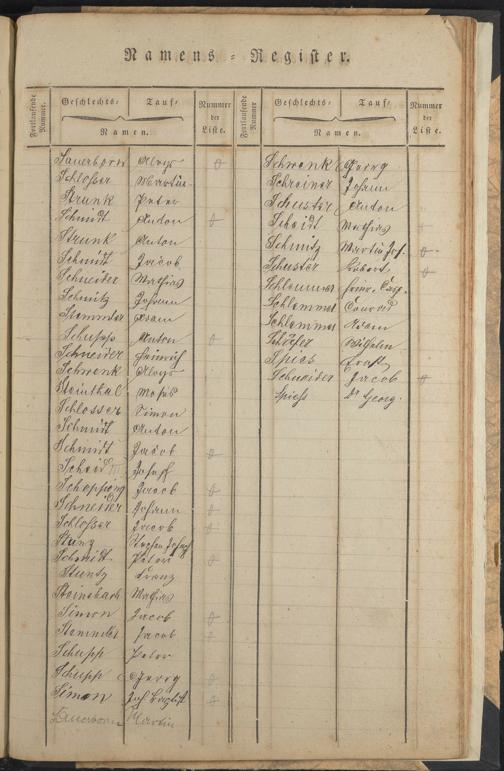 Namens-Register.
Fortlaufende Nummer. Geschlechts- Tauf- Namen. Nummer der Liste.
Fortlaufende Nummer. Geschlechts- Tauf- Namen. Nummer der Liste.
Sauerborn Aloys
Schlosser Martin
Strunk Peter
Schmidt Anton
Strunk Anton
Schmidt Jacob
Schneider Mathias
Schmitz Johann
Stemmler Adam
Schupp Anton
Schneider Heinrich
Schwenk Aloys
Steinthal Moses
Schlosser Simon
Schmidt Anton
Schmidt Jacob
Scheid Josef
Schopping Jacob
Schneider Johann
Schlosser Jacob
Stanz Stephan Joseph
Schmidt Peter
Stuntz Franz
Steinebach Mathias
Simon Jacob
Stemmler Jacob
Schupp Peter
Schupp Georg
Simon Joh Baptist
Sauerborn Martin
Schwenk Georg
Schreiner Johann
Schuster Anton
Scheidt Mathias
Schmitz Martin Jos.
Schuster Hubert
Schlemmer
Schlemmer Conrad
Schlemmer Adam
Schäfer Wilhelm
Spies Ernst
Schneider Jacob
Spiess Dr Georg.